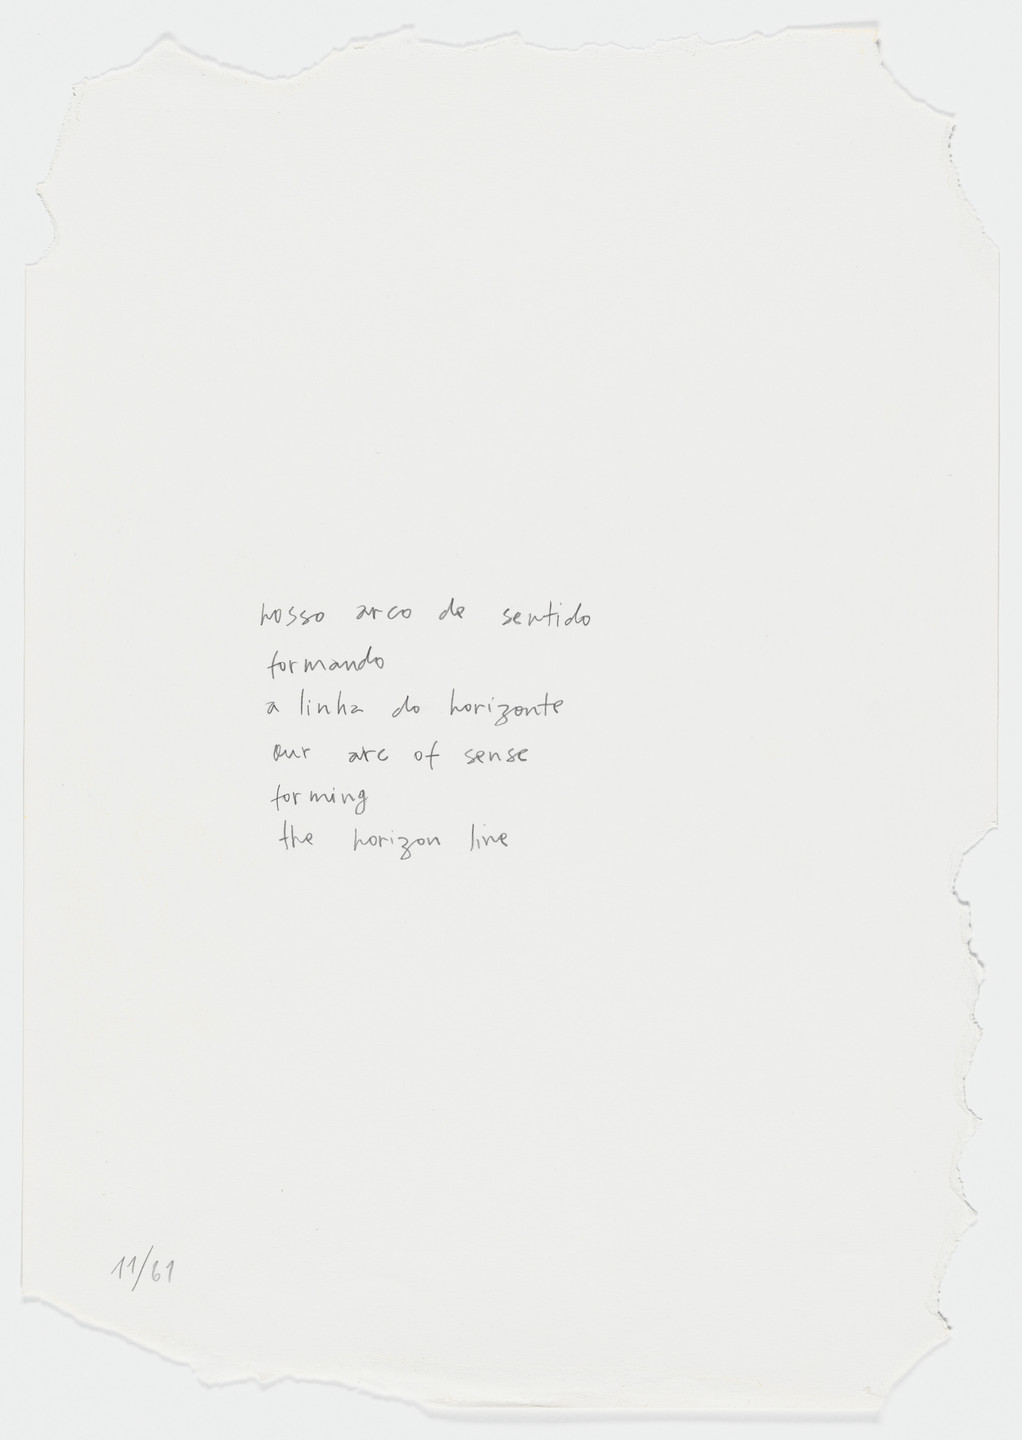 nosso arco de sentido
formando
a linha do horizonte
our arc of sense
forming
the horizon line
11/61